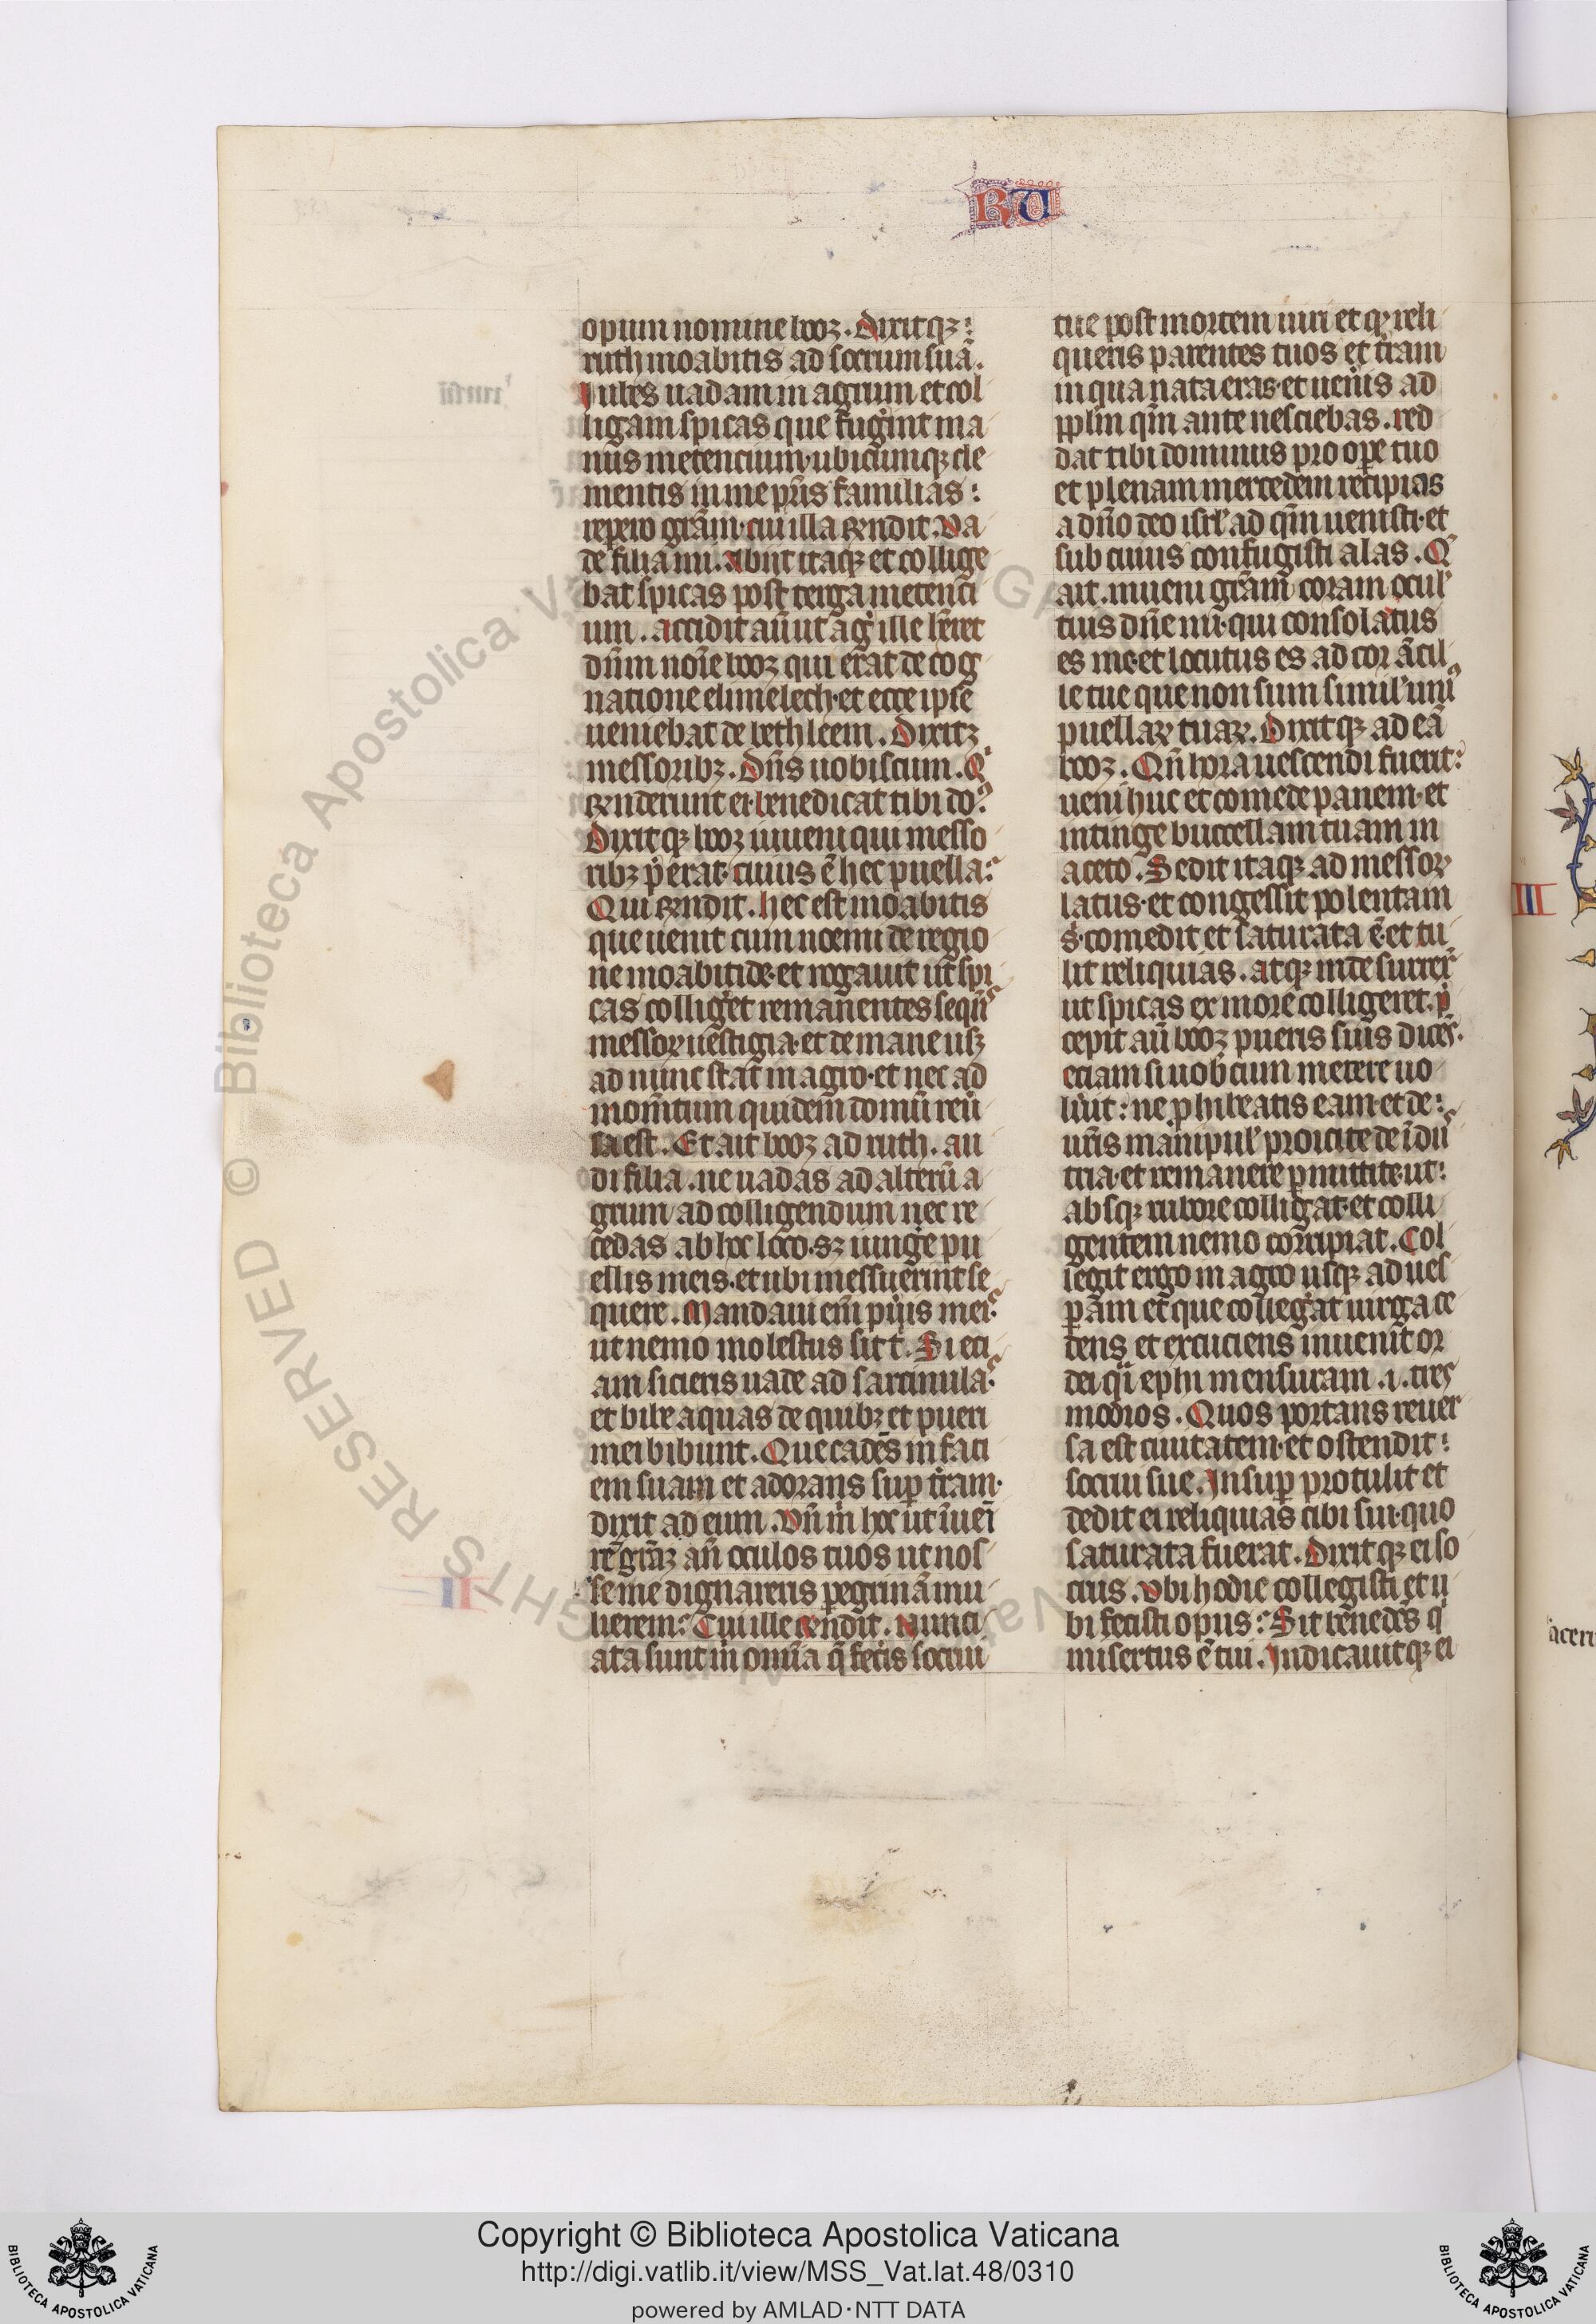 RU
opum nomine booz. Dixitqȝ:
ruth moabitis ad socrum suā.
Iubes uadam in agrum et col
ligam spicas que fug̾int ma
nus metencium· ubicumqȝ cle
mentis in me pr̄is familias:
reꝑero gr̄am· cui illa r̄ndit. Va
de filia mi. Abiit itaqȝ et collige
bat spicas post terga metenci
um. accidit aūt ut ag̾ ille h̄ret
dn̄m noīe booz qui erat de cog
natione elimelech· et ecce ipse
ueniebat de bethleem. Dixitȝ
messoribȝ. Dn̄s uobiscum. Qͥ
r̄nderunt ei· benedicat tibi do⁹
Dixitqȝ booz iuueni qui messo
ribȝ p̾erat· cuius ē hec puella:
Qui r̄ndit. hec est moabitis
que uenit cum noemi de regio
ne moabitide· et rogauit ut spi
cas collig̾et remanentes seqn̄s
messoꝝ uestigia· et de mane usȝ
ad nunc stat in agro· et nec ad
mom̄tum quidem domū reu̾
sa est. Et ait booz ad ruth. au
di filia. ne uadas ad alterū a
grum ad colligendum nec re
cedas ab hoc loco. sȝ iunge pu
ellis meis. et ubi messuerint se
quere. Mandaui em̄ pu̾is meis
ut nemo molestus sit t̄. Si eci
am sicieris uade ad sarcinulas
et bibe aquas de quibȝ et pueri
mei bibunt. Que cadēs in faci
em suam et adorans suꝑ t̄ram·
dixit ad eum. Vn̄ m̄ hoc ut īuēi
rē gr̄aȝ an̄ oculos tuos ut nos
se me dignareris ꝑegrinā mu
lierem: Cui ille r̄ndit. Nunci
ata sunt m̄ omīa q̄ fec̾is socrui
tue post mortem uiri et qꝫ reli
queris parentes tuos et t̄ram
in qua nata eras· et uen̾is ad
pp̄lm qm̄ ante nesciebas. red
dat tibi dominus pro oꝑe tuo
et plenam mercedem recipias
a dn̄o deo isrl̄ ad qm̄ uenisti· et
sub cuius confugisti alas. Q̄
ait. inueni gr̄am coram ocul̾
tuis dn̄e mi· qui consolatus
es me· et locutus es ad cor ācil
le tue que non sum simil̾ uni⁹
puellaꝝ tuaꝝ. Dixitqȝ ad eā
booz. Qn̄ hora uescendi fuerit:
ueni huc et comede panem· et
intinge buccellam tuam in
aceto. Sedit itaqȝ ad messoꝝ
latus· et congessit polentam
s̾· comedit et saturata ē· et tu
lit reliquias. atqȝ inde surrex̾
ut spicas ex more colligeret. p̾
cepit aū booz pueris suis dicēs·
eciam si uob̄cum metere uo
lu̾it: ne ꝓhibeatis eam· et de:
ur̄is manipul̾ proicite de īdus
tria· et remanere ꝑmittite· ut:
absqȝ rubore colligat· et colli
gentem nemo corripiat. Col
legit ergo in agro usqȝ ad ues
ꝑam et que colleg̾at uirga ce
dens et excuciens inuenit or
dei qͣi ephi mensuram .i. tres
modios. Quos portans reuer
sa est ciuitatem· et ostendit:
socrui sue. Insuꝑ protulit et
dedit ei reliquias cibi sui· quo
saturata fuerat. Dixitqȝ ei so
crus. Vbi hodie collegisti et u
bi fecisti opus: Sit bened̄cs qͥ
misertus ē tui. Indicauitqȝ ei
II
III
© Biblioteca Apostolica Vaticana
RIGHTS RESERVED
Copyright © Biblioteca Apostolica Vaticana
http://digi.vatlib.it/view/MSS_Vat.lat.48/0310
powered by AMLAD·NTT DATA
BIBLIOTECA APOSTOLICA VATICANA
BIBLIOTECA APOSTOLICA VATICANA